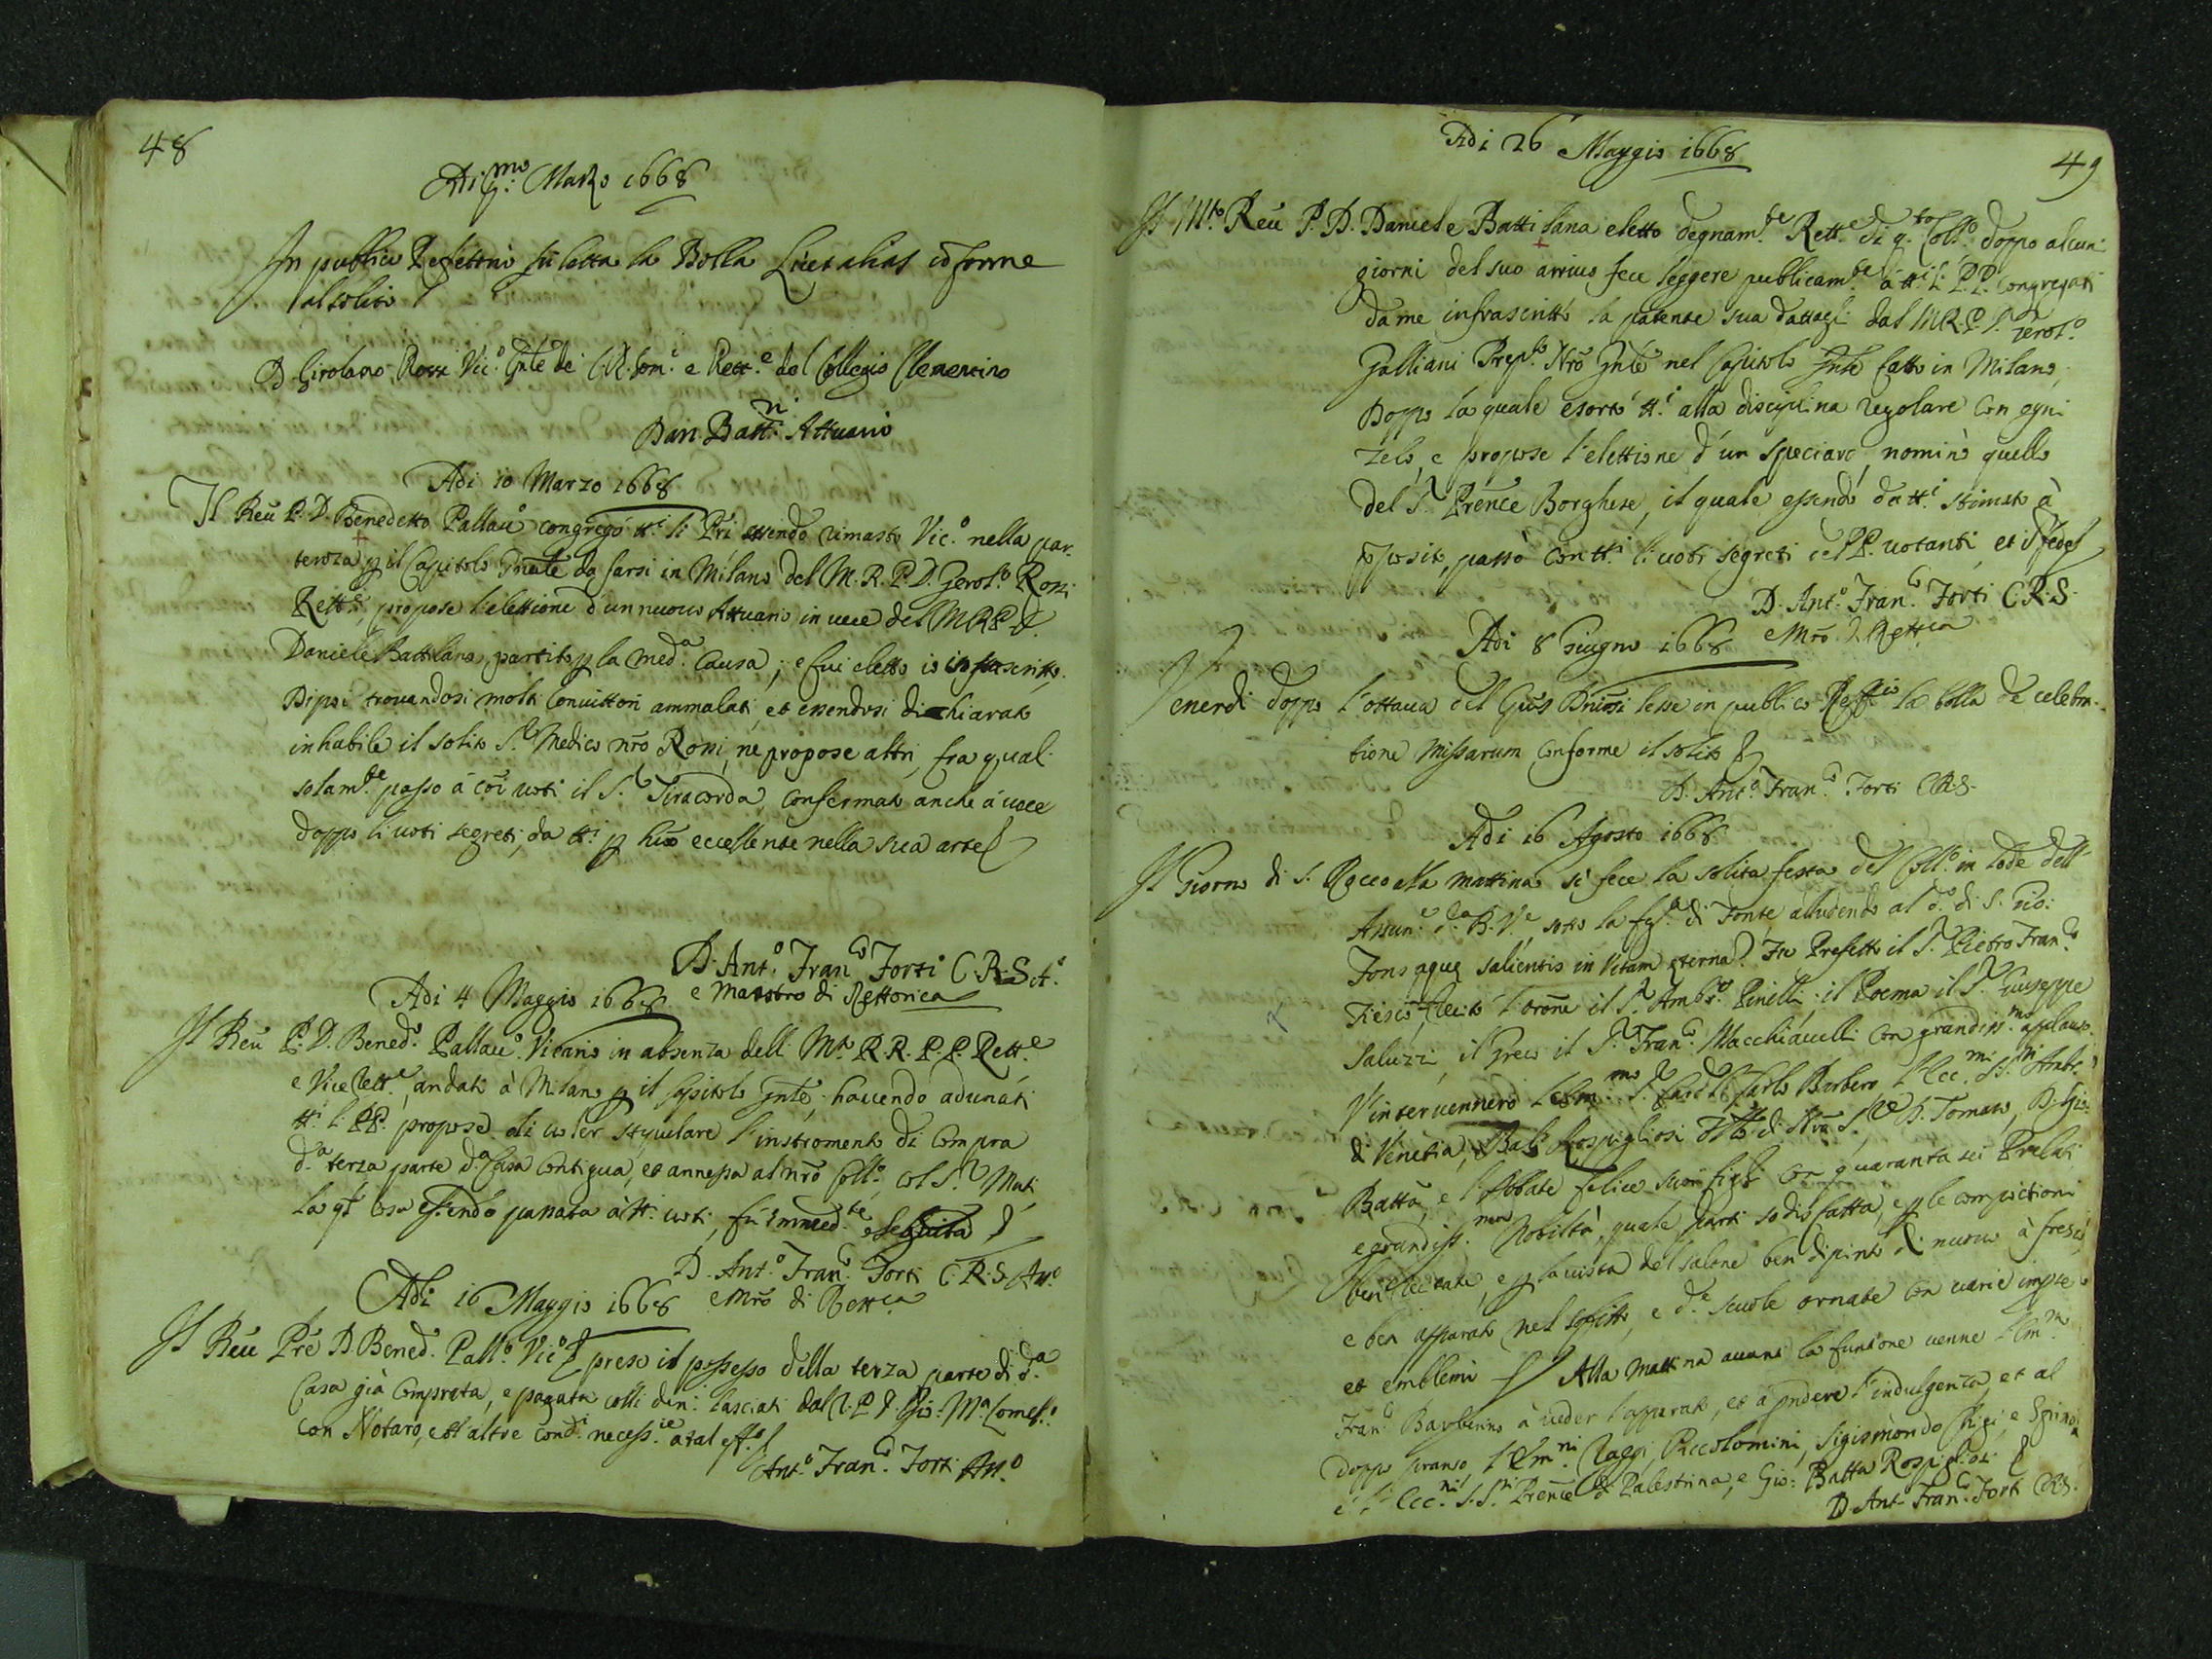 48
Adi p.mo Marzo 1668
In publico Refettorio fù letta la Bolla Licet alias cõforme
al solito
D. Girolamo Rossi Vic.o Gñle de C.R. Som.i e Rett.e del Collegio Clementino
Dan Batt.ni Attuario
Adi 10 Marzo 1668
Il Reu P. D. Benedetto Pallau.o congregò tt.i li Pri essendo rimasto Vic.o nella par-
tenza p il Capitolo Gñale da farsi in Milano del M. R. P. D. Gerol.o Rossi
Rett.e, propose l'elettione d'un nuouo Attuario in uece del M R P D.
Daniele Battilana partito p la med.a Causa; e fui eletto io infrascritto.
Dipoi trouandosi molti Conuittori ammalati, et essendosi dichiarato
inhabile il solito S.r Medico nrõ Rossi, ne propose altri, fra quali
solam.te passo à cõi uoti il S.r Tiracorda, confermato anche à uoce
doppo li uoti segreti, da tt.i p huõ eccellente nella sua arte
D. Ant.o Fran.co Forti C. R. S. At.o
e Maestro di Rettorica
Adi 4 Maggio 1668
Il Reu P. D. Bened.o Pallau.o Vicario in absenza delli M.to R. R. P. P. Rett.e
e ViceRett.e, andati à Milano p il Capitolo Gñle, hauendo adunati
tt.i li PP. propose di uoler stipulare l'instromento di Compra
d.a terza parte d.a Casa Contigua, et annessa al nrõ Coll.o, col S.r Muti
la ql cosa essendo passata à tt.i uoti, fù immed.te eseguita
D. Ant.o Fran.co Forti C. R. S. At.o
e Mrõ di Rett.ca
Adi 16 Maggio 1668
Il Reu Prẽ D. Bened.o Pall.o Vic.o prese il possesso della terza parte di d.a
Casa già Comprata, e pagata colli den.i lasciati dal P. D. Gio: M.a Comel.o
con Notaro, et altre cond.i necess.ie a tal eff.o
Ant.o Fran.co Forti At.o
49
Adi 26 Maggio 1668
Il M.to Reu P. D. Daniele Battilana eletto degnam.te Rett.e di q.to Coll.o doppo alcuni
giorni del suo arriuo fece leggere publicam.te à tt.i li P.P. Congregati
da me infrascritto la patente sua dattagli dal M.R.P. D. Gerol.o
Galliani Prep.to Nrõ Gñle nel Capitolo Gñle fatto in Milano,
Doppo la quale esortò tt.i alla disciplina regolare con ogni
zelo, e propose l'elettione d'un speciaro, nominò quello
del S.r Prence Borghese, il quale essendo da tt.i stimato à
proposito, passò con tt.i li uoti segreti de PP. uotanti, et i fede
D. Ant.o Fran.co Forti C.R.S.
e Mrõ di Rett.ca
Adi 8 Giugno 1668
Venerdi doppo l'ottaua del Corpus Dñi si lesse in publico Reff.io la bolla de celebra-
tione Missarum conforme il solito
D. Ant.o Fran.co Forti C.R.S.
Adi 16 Agosto 1668
Il Giorno di S. Rocco alla mattina si fece la solita festa del Coll.o in lode dell'
Assun.e d.a B. V.e sotto la fig.a di Fonte, alludendo al d.o di S. Gio:
Fons aquę salientis in Vitam ęternã. Fu Prefetto il S.r Pietro Fran.co
Fiesco, recitò l'orõne il S.r Ambr.o Pinelli; il Poema il S.r Giuseppe
Saluzzi, il Greco il S.r Fran.co Macchiauelli con grandiss.mo applauso.
V'interuennero l'Em.mo S. Card. Carlo Barbero, l'Ecc.mi SS.ri Amb.r
di Venetia, Bali Rospigliosi Fratello di Nrã S.re D. Tomaso, D. Gio:
Battã, e l'Abbate Felice suoi figli con quaranta sei Prelati
e grandiss.ma Nobiltà, quale parti sodisfatta, e p le compositioni
ben recitate, e p la uista del salone ben dipinto di nuouo à fresco
e ben apparato nel soffitto, e d.e scuole ornate con uarie imprese
et emblemi Alla mattina auanti la funtione uenne l'Em.mo
Fran.co Barberino à ueder l'apparato, et à prẽdere l'indulgenza, et al
doppo pranso l'Em.mi Raggi, Piccolomini, Sigismondo Chigi, e Spinola
e l'Ecc.mi S.S.ri Prencè di Palestrina, e Gio: Batta Rospigliosi
D. Ant. Fran.co Forti C.R.S.